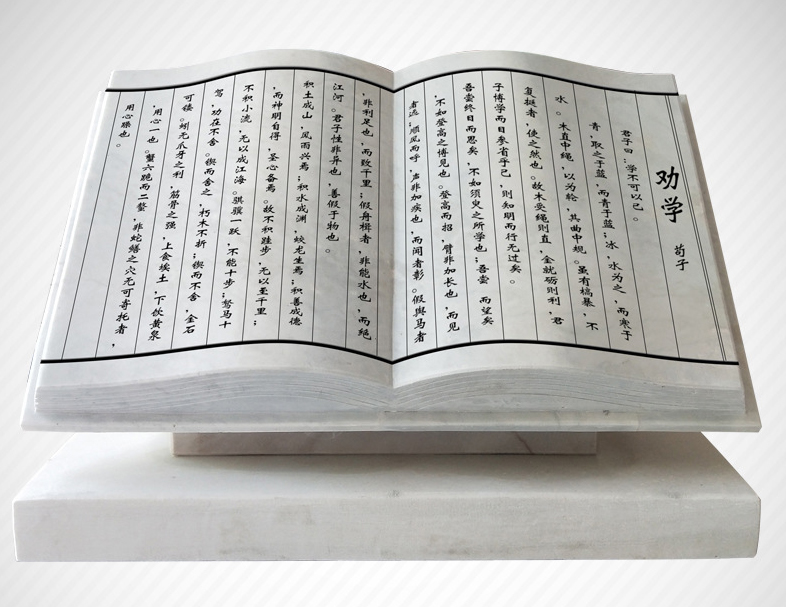 劝学
荀子
君子曰:学不可以已。
青,取之于蓝,而青于蓝;冰,水为之,而寒于
水。木直中绳,以为轮,其曲中规。虽有槁暴,不
复挺者,使之然也。故木受绳则直,金就砺则利,君
子博学而日参省乎己,则知明而行无过矣。
吾尝终日而思矣,不如须臾之所学也;吾尝 而望矣
,不如登高之博见也。登高而招,臂非加长也,而见
者远;顺风而呼,声非加疾也,而闻者彰。假舆马者
,非利足也,而致千里;假舟楫者,非能水也,而绝
江河。君子性非异也,善假于物也。
积土成山,风雨兴焉;积水成渊,蛟龙生焉;积善成德
,而神明自得,圣心备焉。故不积跬步,无以至千里;
不积小流,无以成江海。骐骥一跃,不能十步;驽马十
驾,功在不舍。锲而舍之,朽木不折;锲而不舍,金石
可镂。蚓无爪牙之利,筋骨之强,上食埃土,下饮黄泉
,用心一也。蟹六跪而二螯,非蛇鳝之穴无可寄托者,
用心躁也。